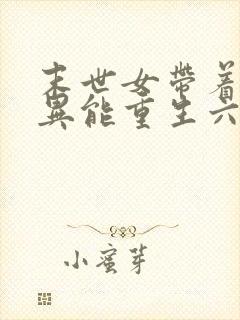 末世女带着
异能重生六
小蜜芽